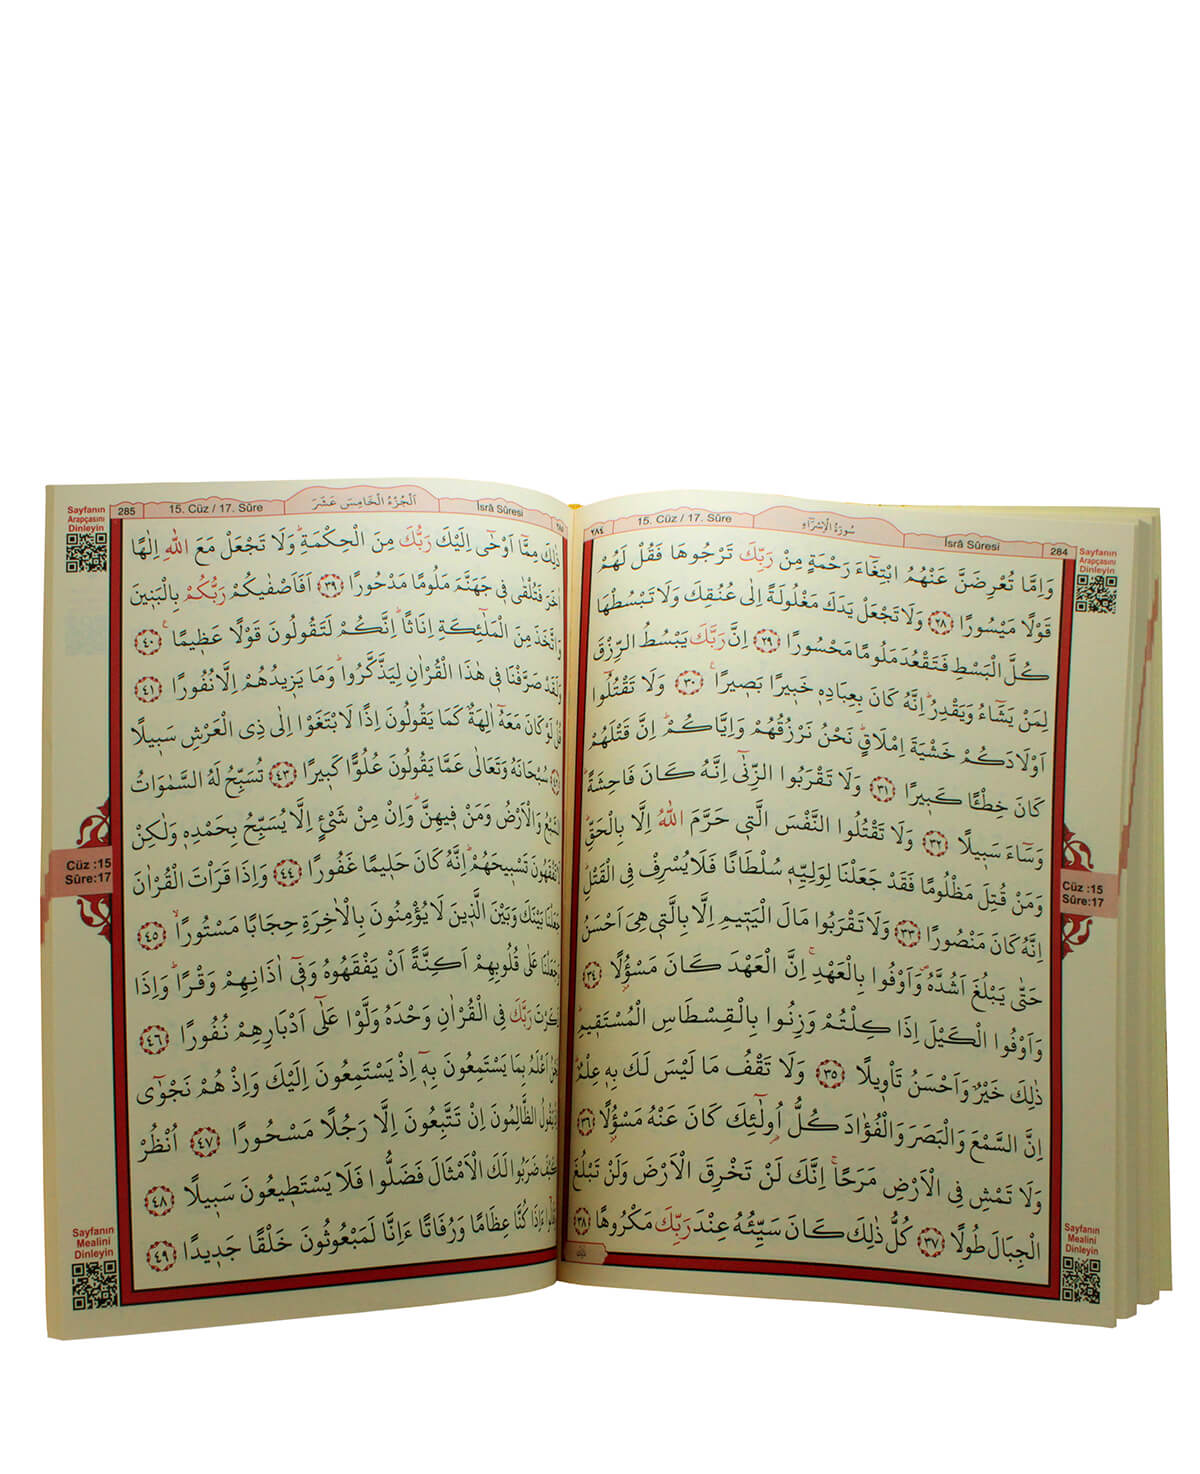 سُورَةُ الْاِسْرَٓاءِ
٢٨٤ 15. Cüz / 17. Sûre İsrâ Sûresi 284
وَاِمَّا تُعْرِضَنَّ عَنْهُمُ ابْتِغَٓاءَ رَحْمَةٍ مِنْ رَبِّكَ تَرْجُوهَا فَقُلْ لَهُمْ
قَوْلًا مَيْسُورًا ﴿٢٨﴾ وَلَا تَجْعَلْ يَدَكَ مَغْلُولَةً اِلٰى عُنُقِكَ وَلَا تَبْسُطْهَا
كُلَّ الْبَسْطِ فَتَقْعُدَ مَلُومًا مَحْسُورًا ﴿٢٩﴾ اِنَّ رَبَّكَ يَبْسُطُ الرِّزْقَ
لِمَنْ يَشَٓاءُ وَيَقْدِرُۜ اِنَّهُ كَانَ بِعِبَادِه۪ خَب۪يرًا بَص۪يرًا۟ ﴿٣٠﴾ وَلَا تَقْتُلُٓوا
اَوْلَادَكُمْ خَشْيَةَ اِمْلَاقٍۜ نَحْنُ نَرْزُقُهُمْ وَاِيَّاكُمْۜ اِنَّ قَتْلَهُمْ
كَانَ خِطْئًا كَب۪يرًا ﴿٣١﴾ وَلَا تَقْرَبُوا الزِّنٰٓى اِنَّهُ كَانَ فَاحِشَةًۜ
وَسَٓاءَ سَب۪يلًا ﴿٣٢﴾ وَلَا تَقْتُلُوا النَّفْسَ الَّت۪ي حَرَّمَ اللّٰهُ اِلَّا بِالْحَقِّۜ
وَمَنْ قُتِلَ مَظْلُومًا فَقَدْ جَعَلْنَا لِوَلِيِّه۪ سُلْطَانًا فَلَا يُسْرِفْ فِي الْقَتْلِۜ
اِنَّهُ كَانَ مَنْصُورًا ﴿٣٣﴾ وَلَا تَقْرَبُوا مَالَ الْيَت۪يمِ اِلَّا بِالَّت۪ي هِيَ اَحْسَنُ
حَتّٰى يَبْلُغَ اَشُدَّهُۖ وَاَوْفُوا بِالْعَهْدِۚ اِنَّ الْعَهْدَ كَانَ مَسْؤُ۫لًا ﴿٣٤﴾
وَاَوْفُوا الْكَيْلَ اِذَا كِلْتُمْ وَزِنُوا بِالْقِسْطَاسِ الْمُسْتَق۪يمِۜ
ذٰلِكَ خَيْرٌ وَاَحْسَنُ تَأْو۪يلًا ﴿٣٥﴾ وَلَا تَقْفُ مَا لَيْسَ لَكَ بِه۪ عِلْمٌۜ
اِنَّ السَّمْعَ وَالْبَصَرَ وَالْفُؤٰادَ كُلُّ اُو۬لٰٓئِكَ كَانَ عَنْهُ مَسْؤُ۫لًا ﴿٣٦﴾
وَلَا تَمْشِ فِي الْاَرْضِ مَرَحًاۚ اِنَّكَ لَنْ تَخْرِقَ الْاَرْضَ وَلَنْ تَبْلُغَ
الْجِبَالَ طُولًا ﴿٣٧﴾ كُلُّ ذٰلِكَ كَانَ سَيِّئُهُ عِنْدَ رَبِّكَ مَكْرُوهًا ﴿٣٨﴾
ذٰلِكَ
Sayfanın
Arapçasını
Dinleyin
Cüz :15
Sûre:17
Sayfanın
Mealini
Dinleyin
اَلْجُزْءُ الْخَامِسَ عَشَرَ
285 15. Cüz / 17. Sûre İsrâ Sûresi
ذٰلِكَ مِمَّٓا اَوْحٰٓى اِلَيْكَ رَبُّكَ مِنَ الْحِكْمَةِۜ وَلَا تَجْعَلْ مَعَ اللّٰهِ اِلٰهًا
اٰخَرَ فَتُلْقٰى ف۪ي جَهَنَّمَ مَلُومًا مَدْحُورًا ﴿٣٩﴾ اَفَاَصْفٰيكُمْ رَبُّكُمْ بِالْبَن۪ينَ
وَاتَّخَذَ مِنَ الْمَلٰٓئِكَةِ اِنَاثًاۜ اِنَّكُمْ لَتَقُولُونَ قَوْلًا عَظ۪يمًا۟ ﴿٤٠﴾
وَلَقَدْ صَرَّفْنَا ف۪ي هٰذَا الْقُرْاٰنِ لِيَذَّكَّرُواۜ وَمَا يَز۪يدُهُمْ اِلَّا نُفُورًا ﴿٤١﴾
قُلْ لَوْ كَانَ مَعَهُٓ اٰلِهَةٌ كَمَا يَقُولُونَ اِذًا لَابْتَغَوْا اِلٰى ذِي الْعَرْشِ سَب۪يلًا
﴿٤٢﴾ سُبْحَانَهُ وَتَعَالٰى عَمَّا يَقُولُونَ عُلُوًّا كَب۪يرًا ﴿٤٣﴾ تُسَبِّحُ لَهُ السَّمٰوَاتُ
السَّبْعُ وَالْاَرْضُ وَمَنْ ف۪يهِنَّۜ وَاِنْ مِنْ شَيْءٍ اِلَّا يُسَبِّحُ بِحَمْدِه۪ وَلٰكِنْ
تَفْقَهُونَ تَسْب۪يحَهُمْۜ اِنَّهُ كَانَ حَل۪يمًا غَفُورًا ﴿٤٤﴾ وَاِذَا قَرَأْتَ الْقُرْاٰنَ
جَعَلْنَا بَيْنَكَ وَبَيْنَ الَّذ۪ينَ لَا يُؤْمِنُونَ بِالْاٰخِرَةِ حِجَابًا مَسْتُورًاۙ ﴿٤٥﴾
وَجَعَلْنَا عَلٰى قُلُوبِهِمْ اَكِنَّةً اَنْ يَفْقَهُوهُ وَف۪ٓي اٰذَانِهِمْ وَقْرًاۜ وَاِذَا
ذَكَرْتَ رَبَّكَ فِي الْقُرْاٰنِ وَحْدَهُ وَلَّوْا عَلٰٓى اَدْبَارِهِمْ نُفُورًا ﴿٤٦﴾
نَحْنُ اَعْلَمُ بِمَا يَسْتَمِعُونَ بِه۪ٓ اِذْ يَسْتَمِعُونَ اِلَيْكَ وَاِذْ هُمْ نَجْوٰٓى
اِذْ يَقُولُ الظَّالِمُونَ اِنْ تَتَّبِعُونَ اِلَّا رَجُلًا مَسْحُورًا ﴿٤٧﴾ اُنْظُرْ
كَيْفَ ضَرَبُوا لَكَ الْاَمْثَالَ فَضَلُّوا فَلَا يَسْتَط۪يعُونَ سَب۪يلًا ﴿٤٨﴾
وَقَالُٓوا ءَاِذَا كُنَّا عِظَامًا وَرُفَاتًا ءَاِنَّا لَمَبْعُوثُونَ خَلْقًا جَد۪يدًا ﴿٤٩﴾
Sayfanın
Arapçasını
Dinleyin
Cüz :15
Sûre:17
Sayfanın
Mealini
Dinleyin